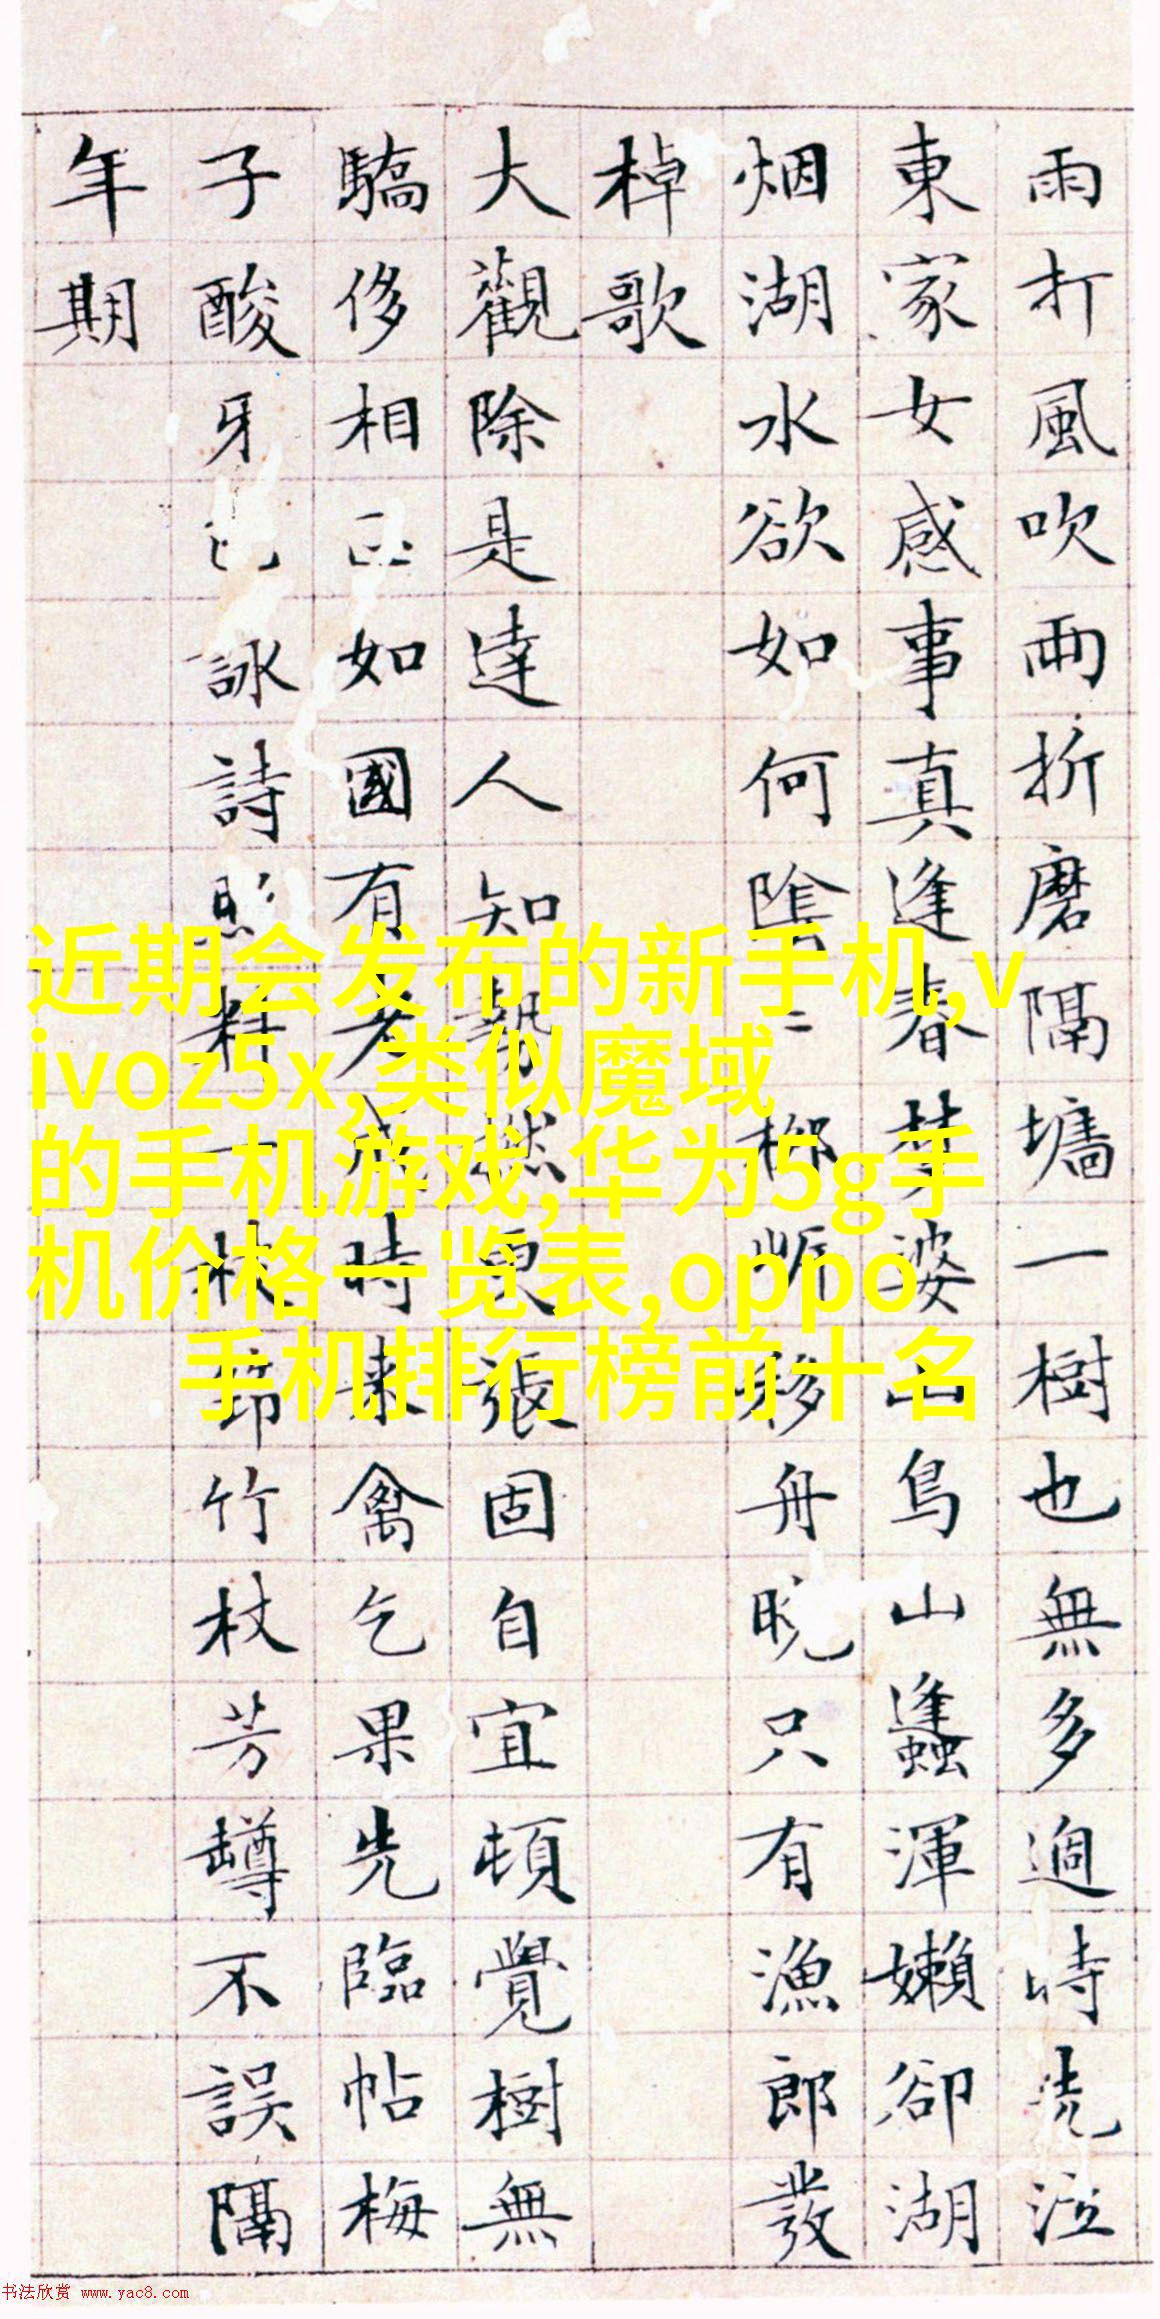 雨打風吹雨折磨隔墻一樹也無多過時泣
東家女感事真逢春夢婆山鳥山蠭渾嬾卻湖
烟湖水欲如何隂移舟晚只有漁郎發
棹歌
大觀除是達人知勢更張固自宜頓覺樹無
驕侈相如國有老成時来禽乞果先臨帖梅
子酸牙詠詩一枝竹杖芳罇不誤隔
年期
近期会发布的新手机,v
ivoz5x,类似魔域
的手机游戏,华为5g手
机价格一览表,oppo
手机排行榜前十名
书法欣赏 www.yac8.com